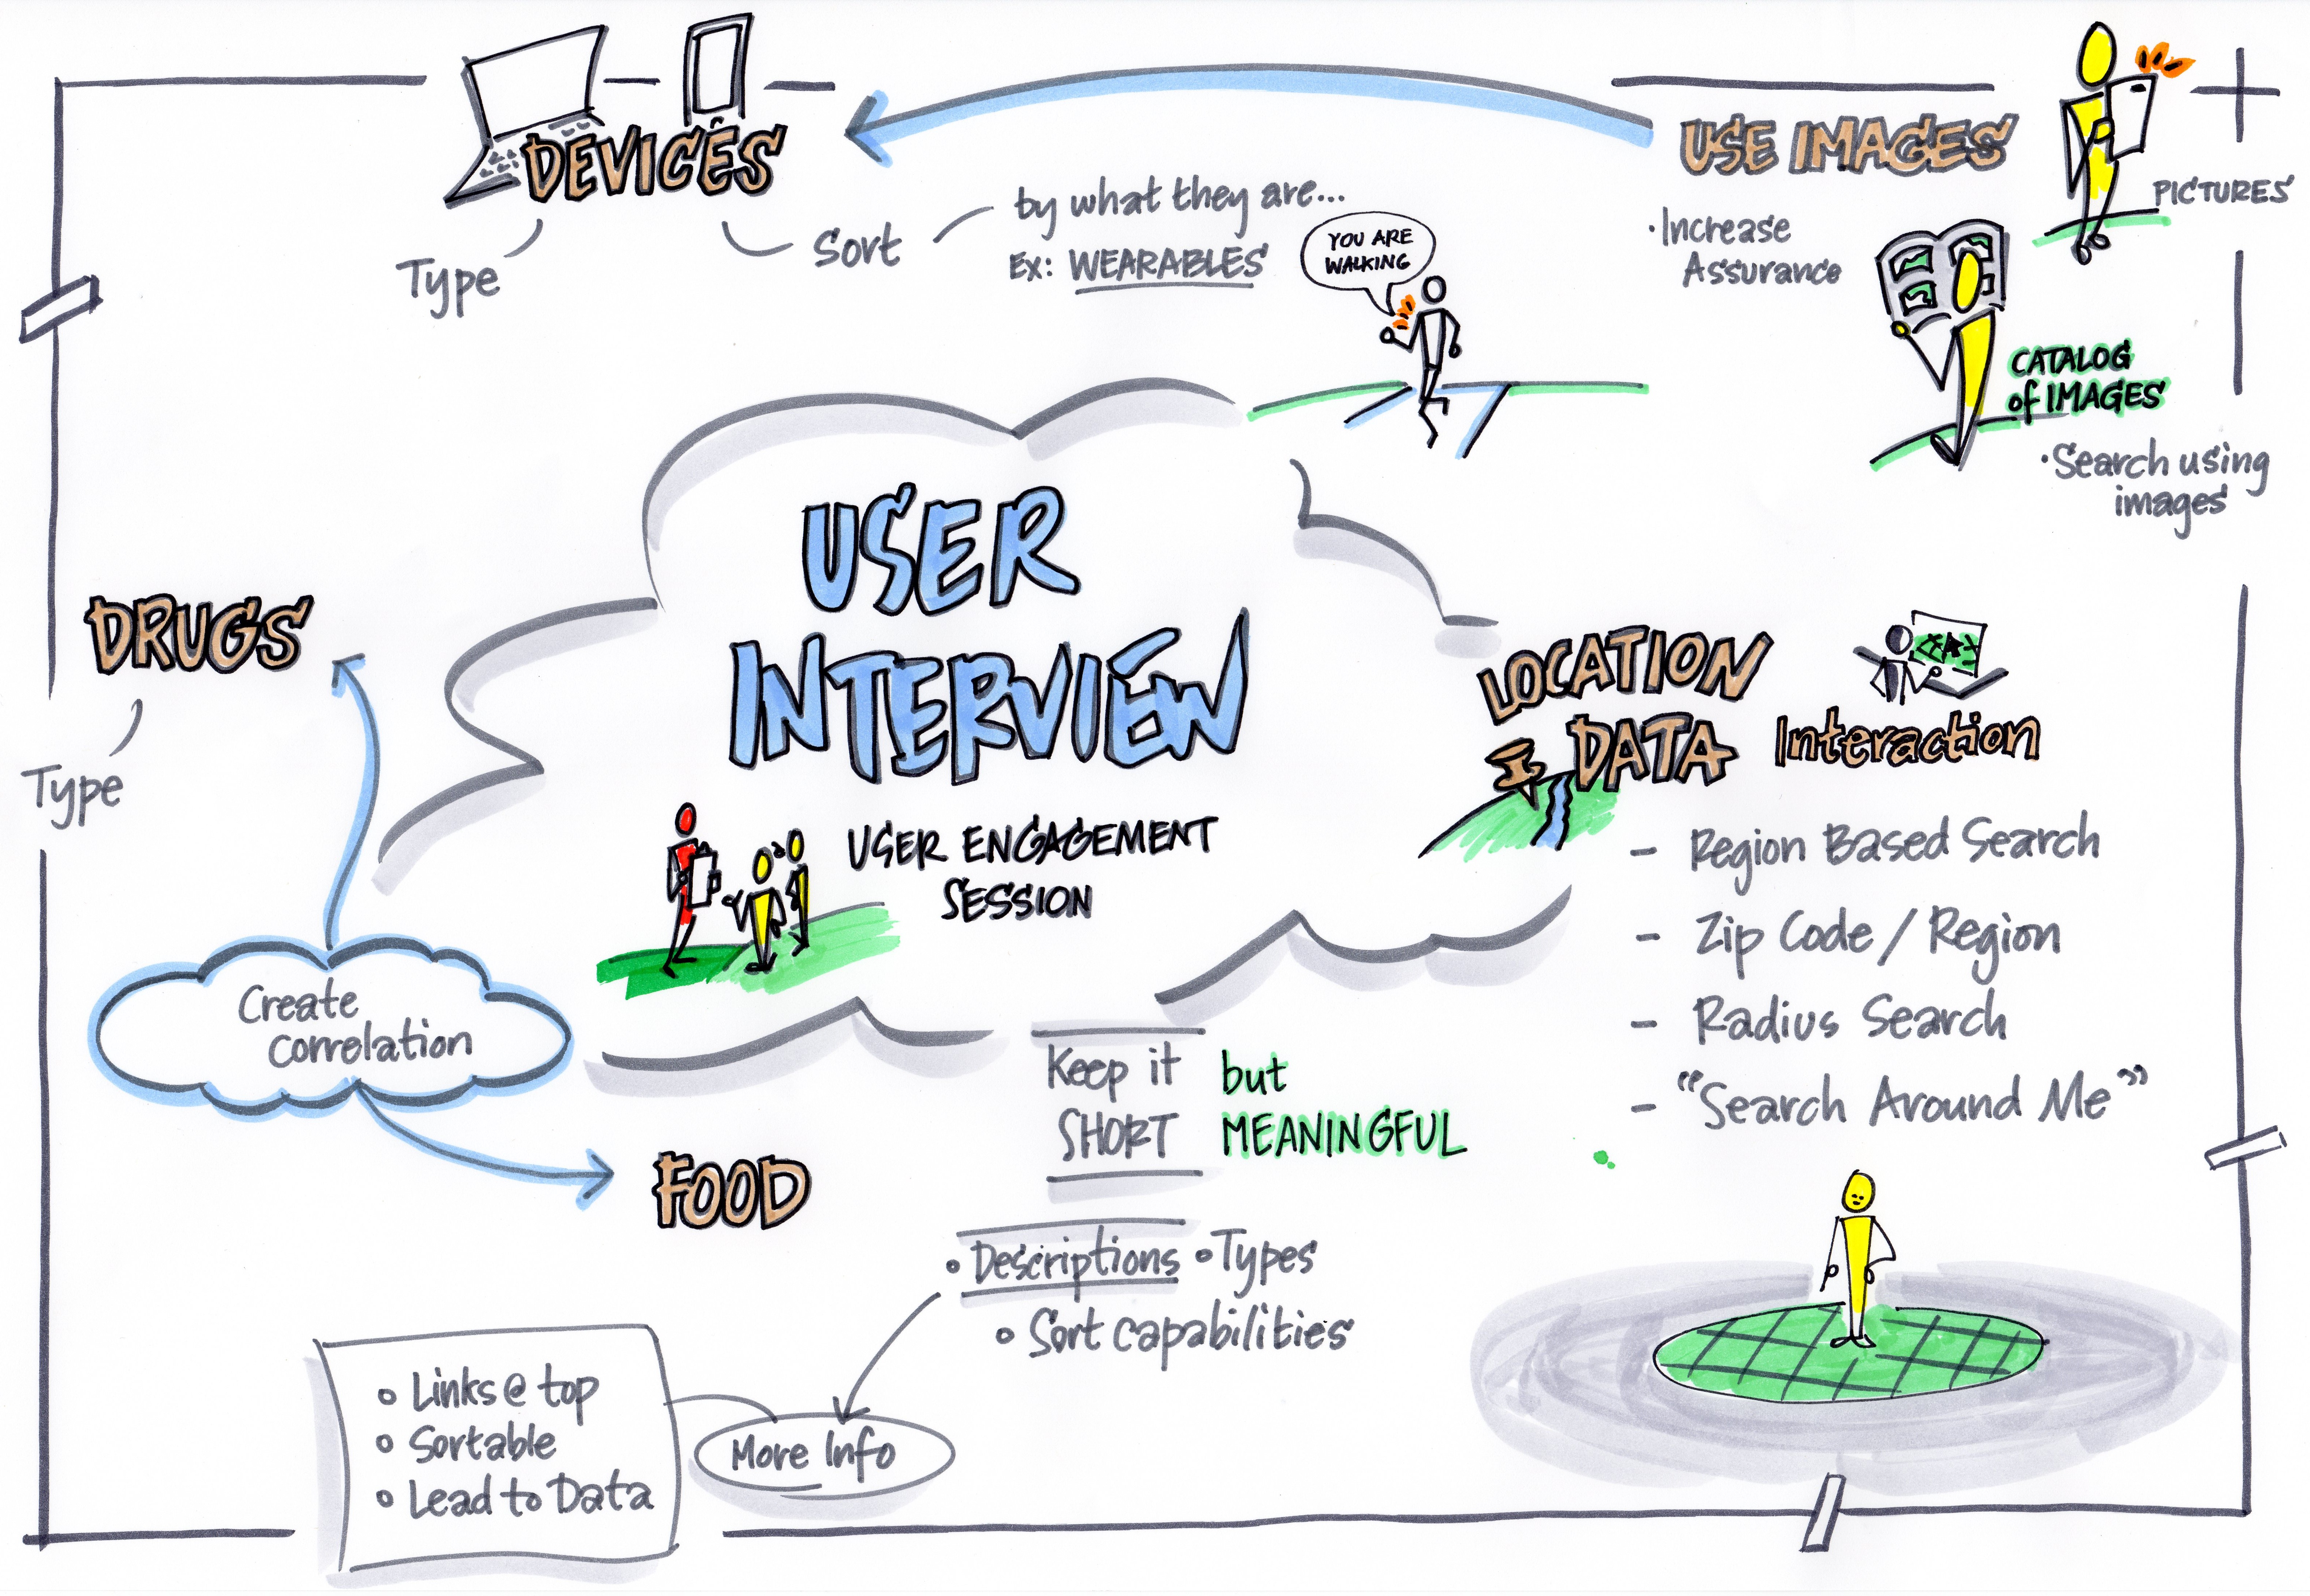 DEVICES
Type
Sort
by what they are...
Ex: WEARABLES
YOU ARE
WALKING
USE IMAGES
PICTURES
·Increase
Assurance
CATALOG
of IMAGES
·Search using
images
USER
INTERVIEW
USER ENGAGEMENT
SESSION
DRUGS
Type
Create
Correlation
FOOD
LOCATION
DATA
Interaction
- Region Based Search
- Zip Code / Region
- Radius Search
- "Search Around Me"
Keep it
SHORT
but
MEANINGFUL
• Descriptions • Types
• Sort capabilities
More Info
• Links @ top
• Sortable
• Lead to Data